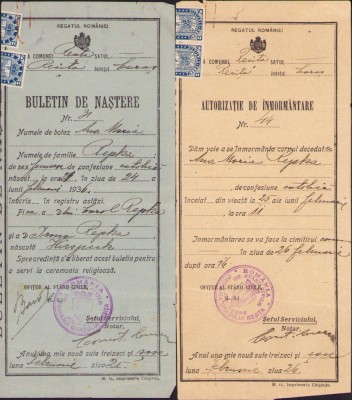 REGATUL ROMÂNIEI
A COMUNEI Resita SATUL
Resita Județul Caraș
BULETIN DE NAȘTERE
Nr. 21
Numele de botez Ana Maria
Numele de familie Repka
de sex femenin de confesiune catolică
născut la ora în ziua de 24 a
lunii februarie 1936,
înscris în registru astăzi.
Fiica a D-lui Carol Repka
și a D Irma Repka
născută
Spre credință s'a liberat acest buletin pentru
a servi la ceremonia religioasă.
OFIȚER AL STĂRII CIVILE,
ROMÂNIA
Șeful Serviciului,
Notar,
Anul una mie nouă sute treizeci și șase
luna februarie ziua 25
M. O., Imprimeria Chișinău.
REGATUL ROMÂNIEI
A COMUNEI Resita SATUL
Resita Județul Caraș
AUTORIZAȚIE DE ÎNMORMÂNTARE
Nr. 44
Dăm voie a se înmormânta corpul decedatei
Ana Maria Repka
de confesiune catolică
încetat din viață în ziua de 25 ale lunii februarie
la ora 11
Înmormântarea se va face la cimitirul
în ziua de 26 februarie
după ora 16
OFIȚER AL STĂRII CIVILE,
ROMÂNIA
Șeful Serviciului,
Notar,
Anul una mie nouă sute treizeci și șase
luna februarie ziua 26
M. O., Imprimeria Chișinău.